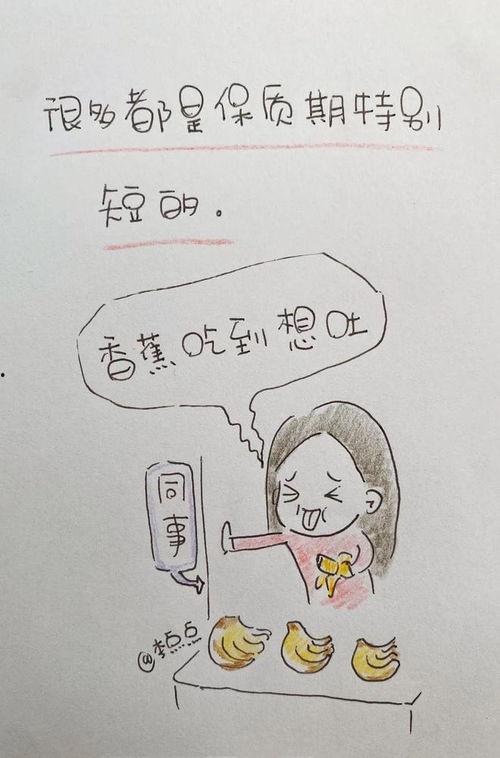 很多都是保质期特别
短的。
香蕉吃到想吐
同事
@李点点